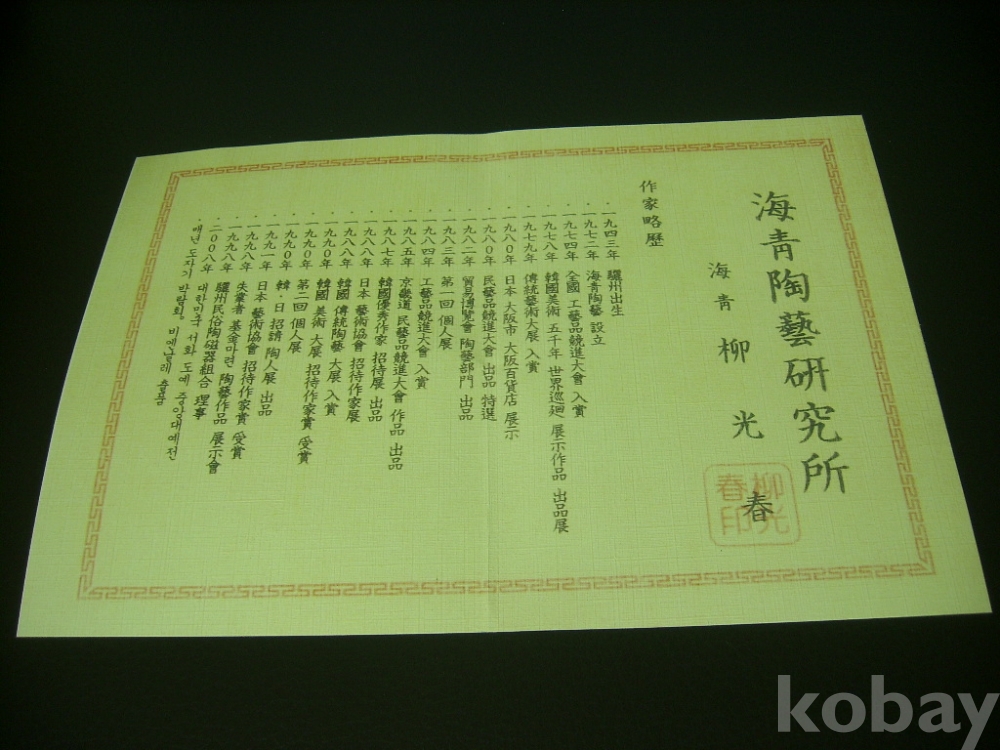 海靑陶藝研究所
海靑 柳光春
柳光
春印
作家略歷
· 一九四三年 驪州出生
· 一九七二年 海靑陶藝 設立
· 一九七四年 全國 工藝品競進大會 入賞
· 一九七八年 韓國美術 五千年 世界巡廻 展示作品 出品展
· 一九七九年 傳統藝術大展 入賞
· 一九八0年 日本 大阪市 大阪百貨店 展示
· 一九八0年 民藝品競進大會 出品 特選
· 一九八二年 貿易博覽會 陶藝部門 出品
· 一九八三年 第一回 個人展
· 一九八四年 工藝品競進大會 入賞
· 一九八五年 京畿道 民藝品競進大會 作品 出品
· 一九八七年 韓國優秀作家 招待展 出品
· 一九八八年 日本 藝術協會 招待作家展
· 一九八八年 韓國 傳統陶藝 大展 入賞
· 一九九0年 韓國 美術 大展 招待作家賞 受賞
· 一九九0年 第二回 個人展
· 一九九一年 韓·日 招請 陶人展 出品
· 一九九八年 日本 藝術協會 招待作家賞 受賞
· 一九九八年 失業者 基金마련 陶藝作品 展示會
· 二00八年 驪州民俗陶磁器組合 理事
· 대한민국 서화 도예 중앙대예전
· 매년 도자기 박람회, 비엔날레 출품
kobay